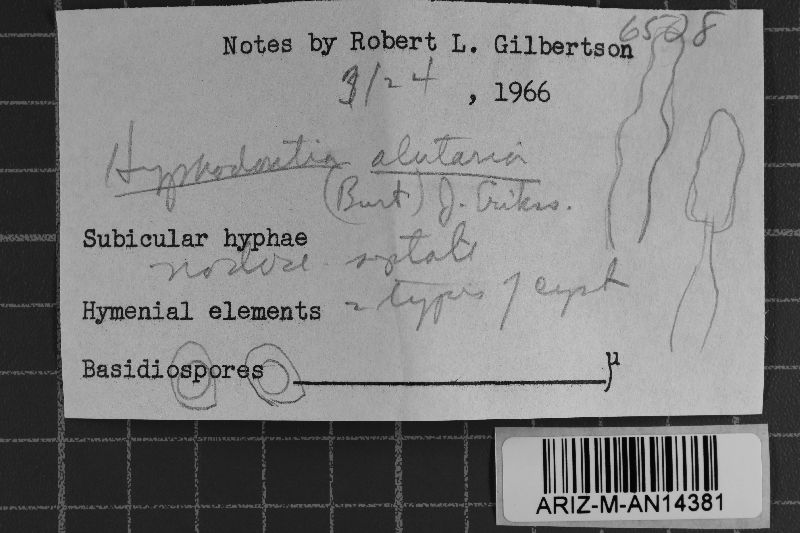 6528
Notes by Robert L. Gilbertson
3/24, 1966
Hyphodontia alutaria
(Burt) J. Erikss.
Subicular hyphae
nodose septate
Hymenial elements 2 types of cyst
Basidiospores μ
ARIZ-M-AN14381